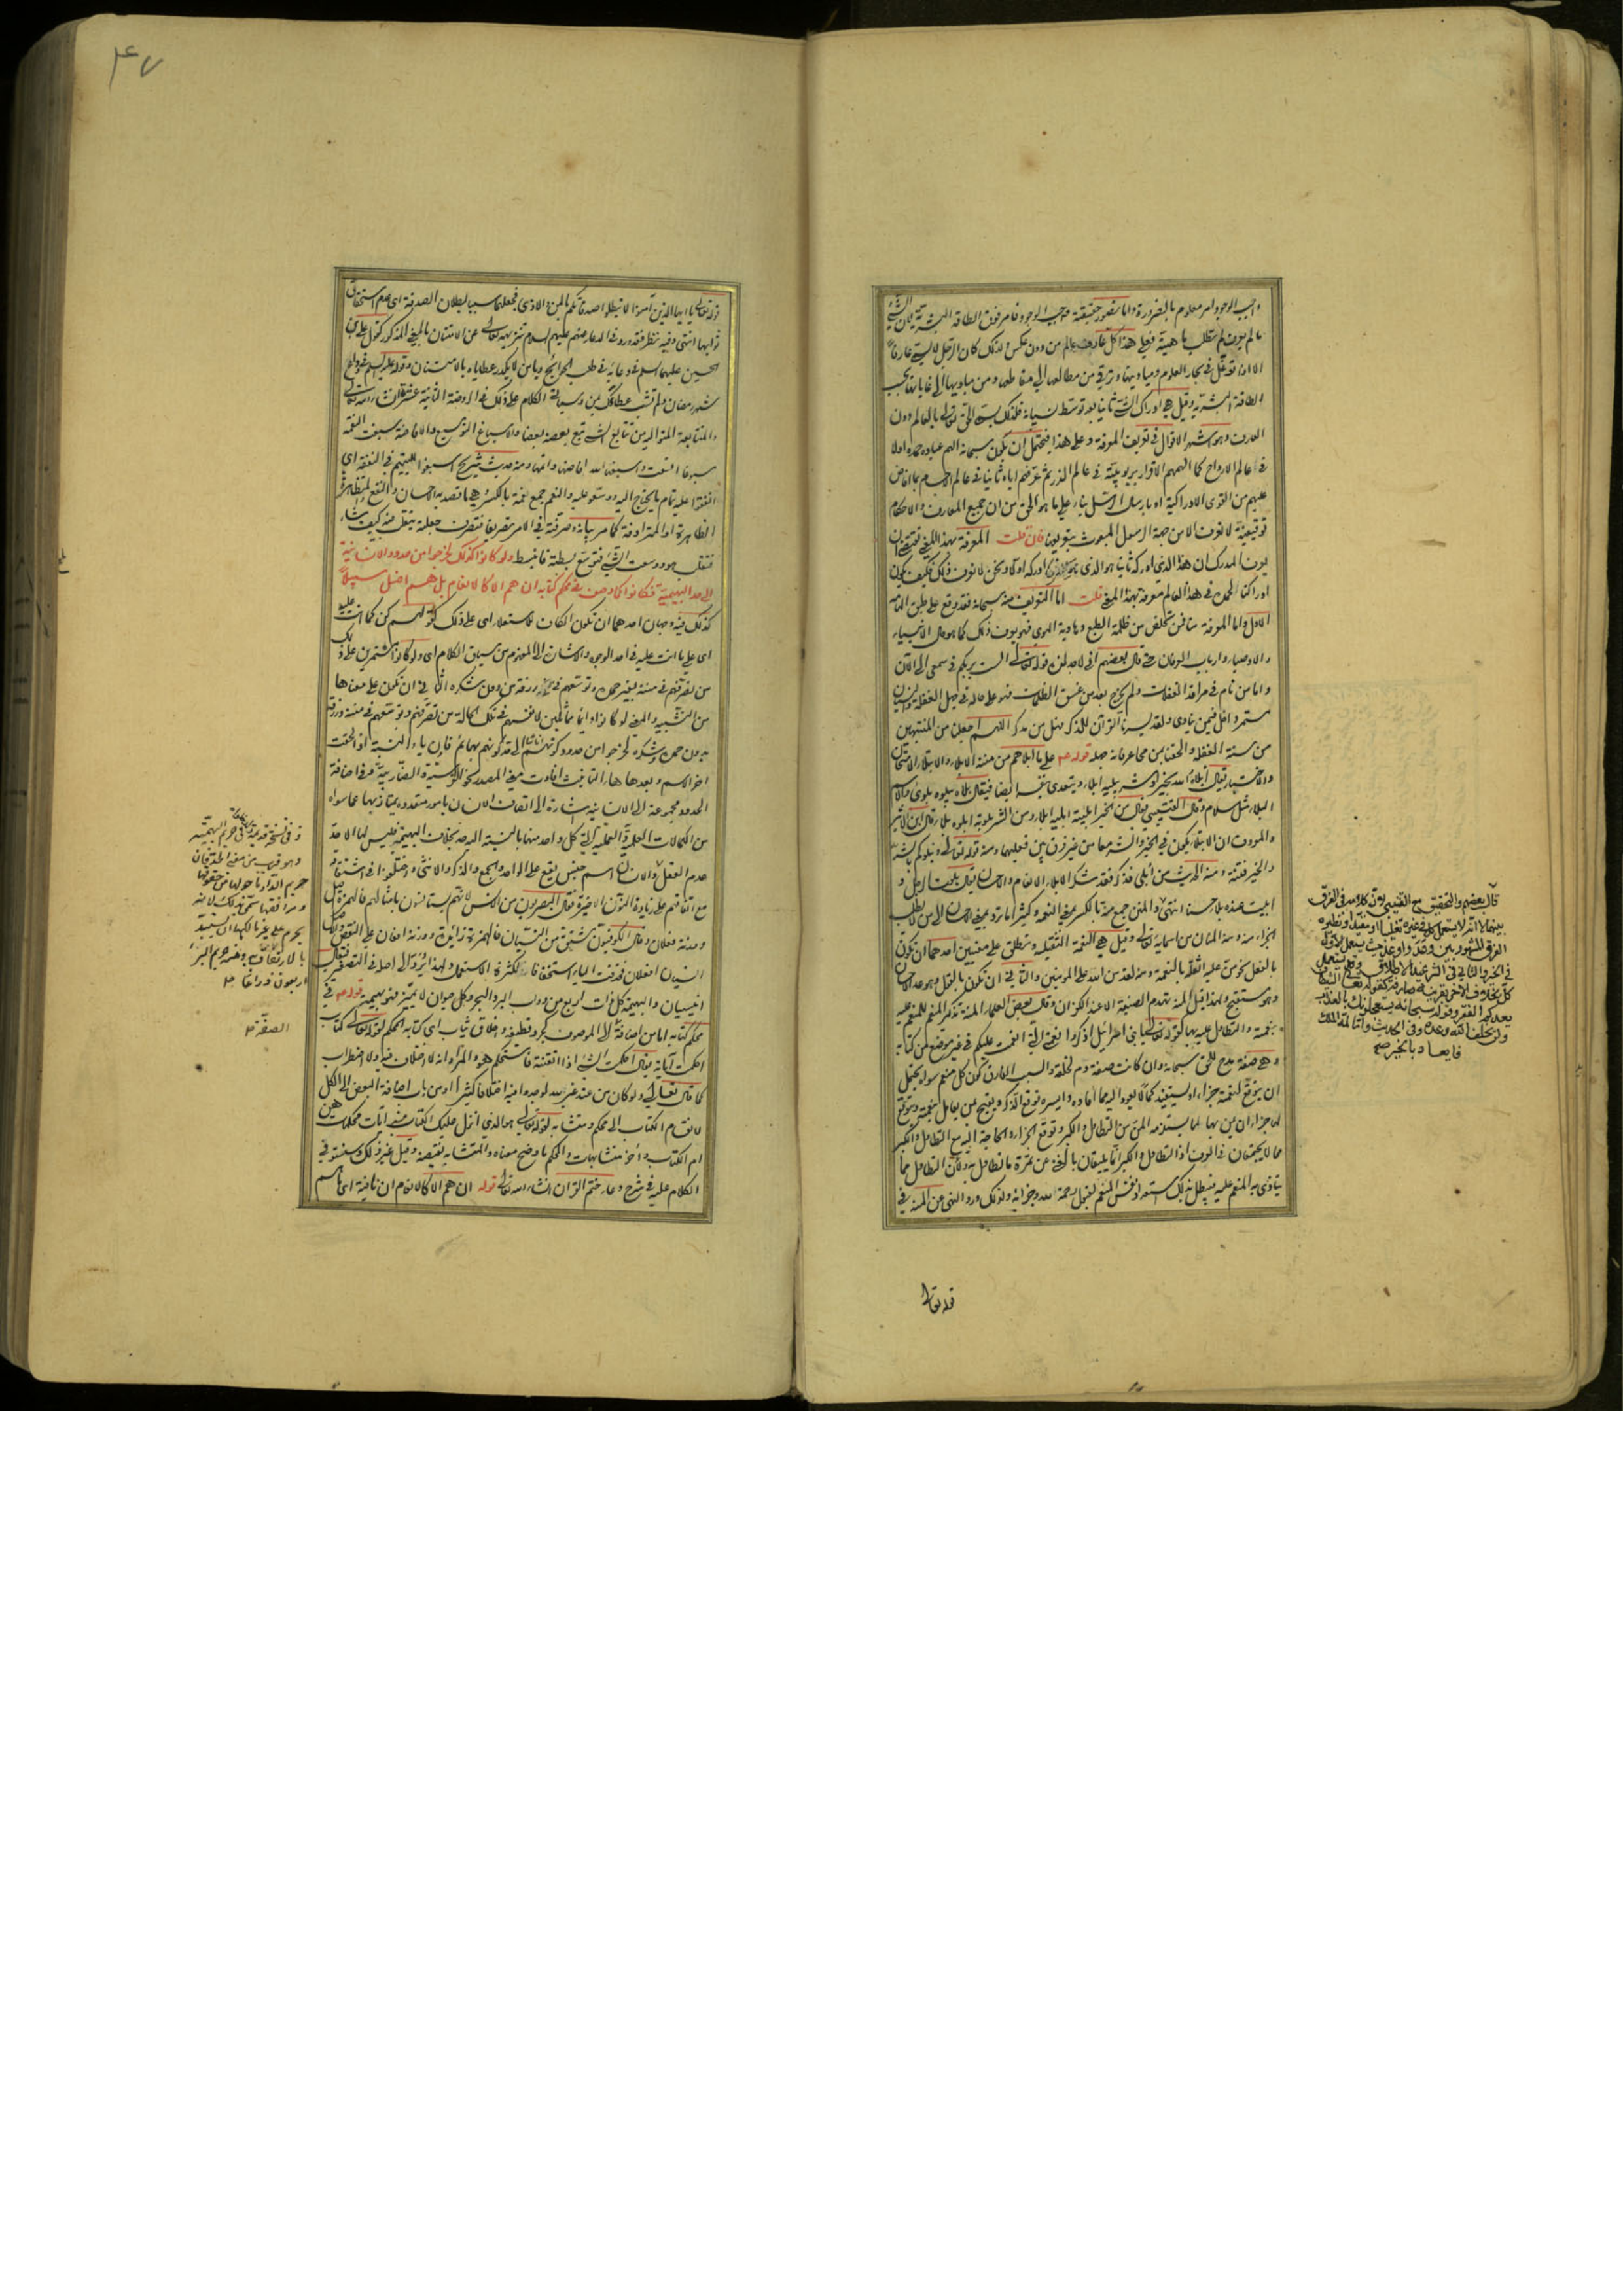 واجب الوجود امر معلوم بالضرورة واما تصور حقيقة واجب الوجود فامر فوق الطاقة البشرية لان الشئ
ما لم يعرف لم تطلب ماهيته فعلى هذا كل عارف عالم من دون عكس ولذلك كان الرجل لا يسمى عارفا
الا اذا توغل في بحار العلوم ومباديها وترقى من مطالعها الى مقاطعها ومن مباديها الى غاياتها بحسب
الطاقة البشرية وقيل هي ادراك الشئ ثانيا بعد توسط نسيانه فلذلك يسمى الحق تعالى بالعالم دون
العارف وهو اشهر الاقوال في تعريف المعرفة وعلى هذا فيحتمل ان يكون سبحانه الهم عباده حمده اولا
في عالم الارواح كما الهمهم الاقرار بربوبيته في عالم الذر ثم عرفهم اياه ثانيا في عالم الاجسام بما افاض
عليهم من القوى الادراكية او بارسال الرسل بناء على ما هو الحق من ان جميع المعارف والاحكام
توقيفية لا تعرف الا من جهة الرسول المبعوث بتعريفها فان قلت المعرفة بهذا المعنى تقتضي ان
يعرف المدرك ان هذا الذي ادركه ثانيا هو الذي ادركه اولا ونحن لا نعرف ذلك فكيف يكون
ادراكنا لحمده في هذا العالم معرفة بهذا المعنى قلت اما التعريف منه سبحانه فقد وقع على طبق الهامه
الاول واما المعرفة منا فمن تخلص من ظلمة الطبع وهاوية الهوى فهو يعرف ذلك كما هو حال الانبياء
والاوصياء وارباب العرفان حتى قال بعضهم اني لاجد لذة قوله تعالى الست بربكم في سمعي الى الآن
واما من نام في مراقد الغفلات ولم يخرج بعد من غسق الظلمات فهو على حاله في جهل الغفلة والنسيان
مستمر داخل فيمن ينادى ولقد يسرنا القرآن للذكر فهل من مدكر اللهم اجعلنا من المنتبهين
من سنة الغفلة والحقنا بمن محا عرفانه جهله قوله ع على ما ابلاهم من مننه الابلاء والابتلاء الامتحان
والاختبار يقال ابلاه الله بخير او شر يبليه ابلاء ويتعدى بنفسه ايضا فيقال بلاه يبلوه بلوى والاسم
البلاء مثل سلام وقال القتيبي يقال من الخير ابليته ابليه ابلاء ومن الشر بلوته ابلوه بلاء قال ابن الاثير
والمعروف ان الابتلاء يكون في الخير والشر معا من غير فرق بين فعليهما ومنه قوله تعالى ونبلوكم بالشر
والخير فتنة ومنه الحديث من ابلي فذكر فقد شكر الابلاء الانعام والاحسان يقال بلوت الرجل و
ابليت عنده بلاء حسنا انتهى والمنن جمع منة بالكسر بمعنى النعمة وكثيرا ما ترد بمعنى الاحسان الى من لا يطلب
الجزاء منه ومنه المنان من اسمائه تعالى وقيل هي النعمة الثقيلة وتطلق على معنيين احدهما ان تكون
بالفعل نحو من عليه اثقله بالنعمة ومنه لقد من الله على المؤمنين والثاني ان تكون بالقول وهو عد الاحسان
وهو مستقبح ولهذا قيل المنة تهدم الصنيعة الا عند الكفران وقال بعض العلماء المنة تذكر المنعم للمنعم عليه
بنعمته والتطاول عليه بها كقوله تعالى يا بني اسرائيل اذكروا نعمتي التي انعمت عليكم في غير موضع من كتابه
وهي صفة مدح للحق سبحانه وان كانت صفة ذم لخلقه والسبب الفارق كون كل منعم سواه يحتمل
ان يتوقع لنعمته جزاء او يستفيد كمالا يعود اليه مما افاده وايسره توقع الذكر ويقبح ممن يعامل بنعمته ويتوقع
لها جزاء ان يمن بها لما يستلزمه المن من التطاول والكبر وتوقع الجزاء والحاجة اليه مع التطاول والكبر
مما لا يجتمعان في العرف اذ التطاول والكبر انما يليقان بالغني عن ثمرة ما تطاول به ولان التطاول مما
يتاذى به المنعم عليه فيبطل بذلك استعداد نفس المنعم لقبول رحمة الله وجزائه ولذلك ورد النهي عن المنة في
قوله تعالى
قال بعضهم والتحقيق مع القتيبي لان كلامه في الفرق
بينهما لا انه لا يستعمل كل في غيره تغليبا او مقيدا ونظيره
الفرق المشهور بين وعد واوعد حيث يستعمل الاول
في الخير والثاني في الشر عند الاطلاق وقد يستعمل
كل بخلاف الآخر بقرينة صارفة كقوله تعالى الشيطان
يعدكم الفقر وقوله سبحانه يستعجلونك بالعذاب
ولن يخلف الله وعده وفي الحديث واما لمة الملك
فايعاد بالخير صح
۴۷
قوله تعالى يا ايها الذين آمنوا لا تبطلوا صدقاتكم بالمن والاذى فجعلهما سببا لبطلان الصدقة اي عدم استحقاق
ثوابها انتهى وفيه نظر فقد ورد في الدعاء عنهم عليهم السلام تنزيهه تعالى عن الامتنان بالمعنى المذكور كقول علي بن
الحسين عليهما السلام في دعائه في طلب الحوائج ويا من لا يكدر عطاياه بالامتنان وقوله عليه السلام في وداع
شهر رمضان ولم تشب عطاءك بمن وسياتي الكلام على ذلك في الروضة الثانية عشرة ان شاء الله تعالى
والمتتابعة المتوالية من تتابع الشئ تبع بعضه بعضا والاسباغ التوسيع والافاضة سبغت النعمة
سبوغا اتسعت واسبغها الله افاضها واتمها ومنه حديث شريح اسبغوا لليتيم في النفقة اي
انفقوا عليه تمام ما يحتاج اليه ووسعوا عليه والنعم جمع نعمة بالكسر وهي ما قصد به الاحسان والنفع
الظاهرة او المترادفة كما مر بيانه وصرفته في الامر تصريفا فتصرف جعلته يتقلب فيه كيف شاء
فتقلب هو ووسعت الشئ فتوسع بسطته فانبسط ولو كانوا كذلك لخرجوا من حدود الانسانية
الى حد البهيمية فكانوا كما وصف في محكم كتابه ان هم الا كالانعام بل هم اضل سبيلا
كذلك فيه وجهان احدهما ان تكون الكاف للاستعلاء اي على ذلك كقولهم كن كما انت عليه
اي على ما انت عليه في احد الوجوه والاشارة الى المفهوم من سياق الكلام اي ولو كانوا مستمرين على ذلك
من تصرفهم في مننه بغير حمده وتوسعهم في رزقه من دون شكره الثاني ان تكون على معناها
من التشبيه والمعنى لو كانوا دائما مماثلين لانفسهم في تلك الحالة من تصرفهم وتوسعهم في مننه ورزقه
بدون حمده وشكره لخرجوا من حدود كونهم اناسا الى حد كونهم بهائم فان ياء النسبة اذا لحقت
آخر الاسم وبعدها هاء التانيث افادت معنى المصدر نحو الفروسية والضاربية وفي اضافة
الحدود مجموعة الى الانسانية اشارة الى اتصاف الانسان بامور متعددة يمتاز بها عما سواه
من الكمالات العلمية والعملية التي كل واحد منها بالنسبة اليه حد بخلاف البهيمة فليس لها الا حد
عدم العقل والانسان اسم جنس يقع على الواحد والجمع والذكر والانثى واختلفوا في اشتقاقه
مع اتفاقهم على زيادة النون الاخيرة فقال البصريون من الانس لانهم يستانسون بامثالهم فالهمزة اصل
ووزنه فعلان وقال الكوفيون مشتق من النسيان فالهمزة زائدة ووزنه افعان على النقص والاصل
انسيان افعلان فحذفت الياء استخفافا لكثرة الاستعمال ولهذا يرد الى اصله في التصغير فيقال
انيسيان والبهيمة كل ذات اربع من دواب البر والبحر وكل حيوان لا يميز فهو بهيمة قوله ع في
محكم كتابه اما من اضافة الصفة الى الموصوف كجرد قطيفة واخلاق ثياب اي كتابه المحكم لقوله تعالى كتاب
احكمت آياته يقال احكمت الشئ اذا اتقنته فاستحكم هو والمراد انه لا اختلاف فيه ولا اضطراب
كما قال تعالى ولو كان من عند غير الله لوجدوا فيه اختلافا كثيرا او من باب اضافة البعض الى الكل
لانقسام الكتاب الى محكم ومتشابه لقوله تعالى هو الذي انزل عليك الكتاب منه آيات محكمات هن
ام الكتاب واخر متشابهات والمحكم ما وضح معناه والمتشابه نقيضه وقيل غير ذلك وسنستوفي
الكلام عليه في شرح دعاء ختم القرآن ان شاء الله تعالى قوله ان هم الا كالانعام ان نافية اي ما هم
وفي نسخة قديمة في حريم البهيمية
وهو قريب من معنى الحد فان
حريم الدار ما حولها من حقوقها
ومرافقها سمي بذلك لانه
يحرم على غير مالكها ان يستبد
بالارتفاق به ومنه حريم البئر
اربعون ذراعا ع
الصفة ع